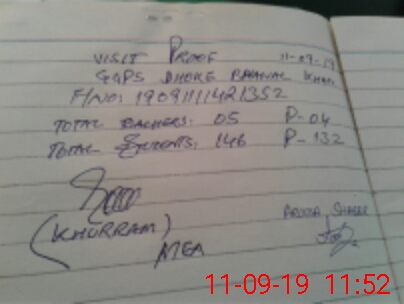 VISIT PROOF 11-09-19
GGPS DHOKE KHAN
F/NO: 19091111421352
TOTAL TEACHERS: 05 P-04
TOTAL STUDENTS: 146 P-132
(KHURRAM)
MEA
11-09-19 11:52